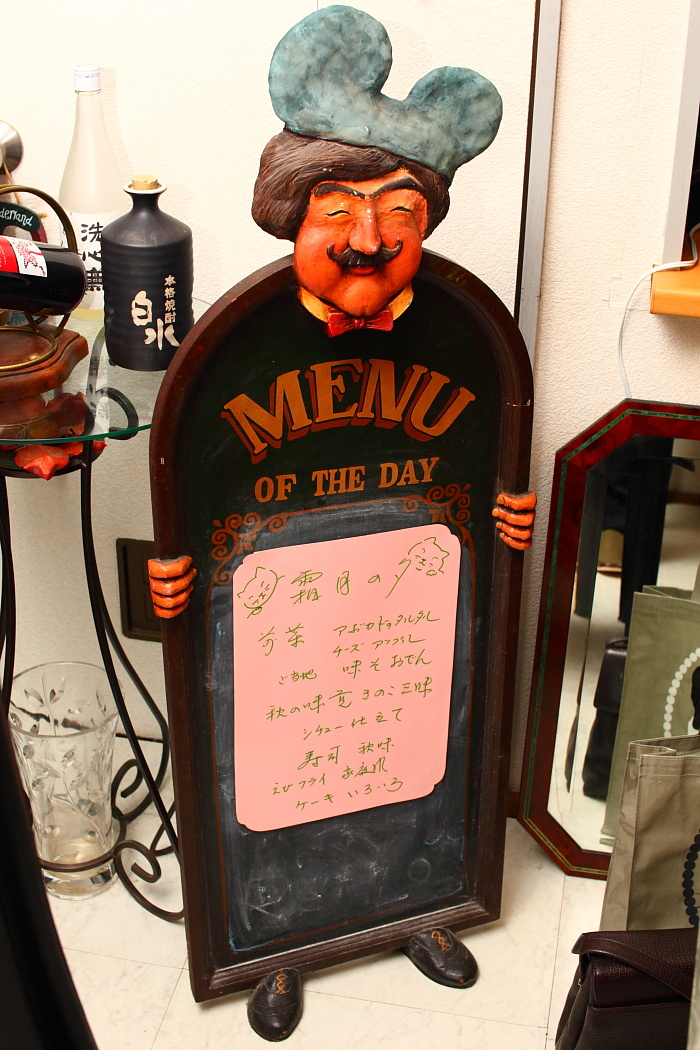 derland
洗心無
本格焼酎
白水
MENU
OF THE DAY
霜月の夕
前菜 アボカドのタルタル
チーズ
ご当地 味そおでん
秋の味覚 きのこ三昧
シチュー仕立て
寿司 秋味
えびフライ 家庭風
ケーキ いろいろ